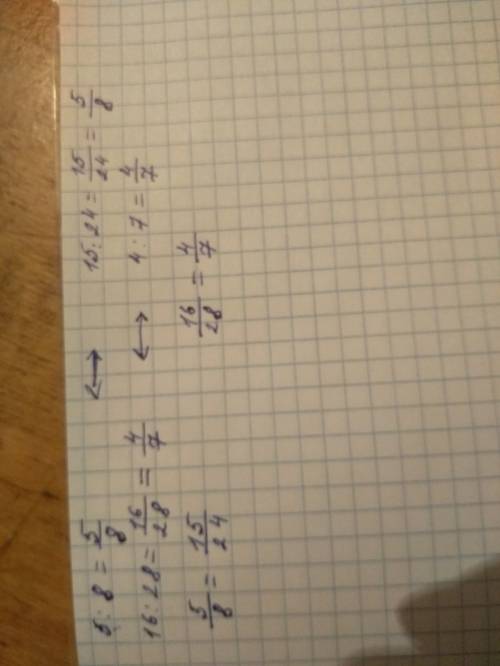 5 : 8 = 5/8 ⟷ 15 : 24 = 15/24 = 5/8
16 : 28 = 16/28 = 4/7 ⟷ 4 : 7 = 4/7
5/8 = 15/24 16/28 = 4/7